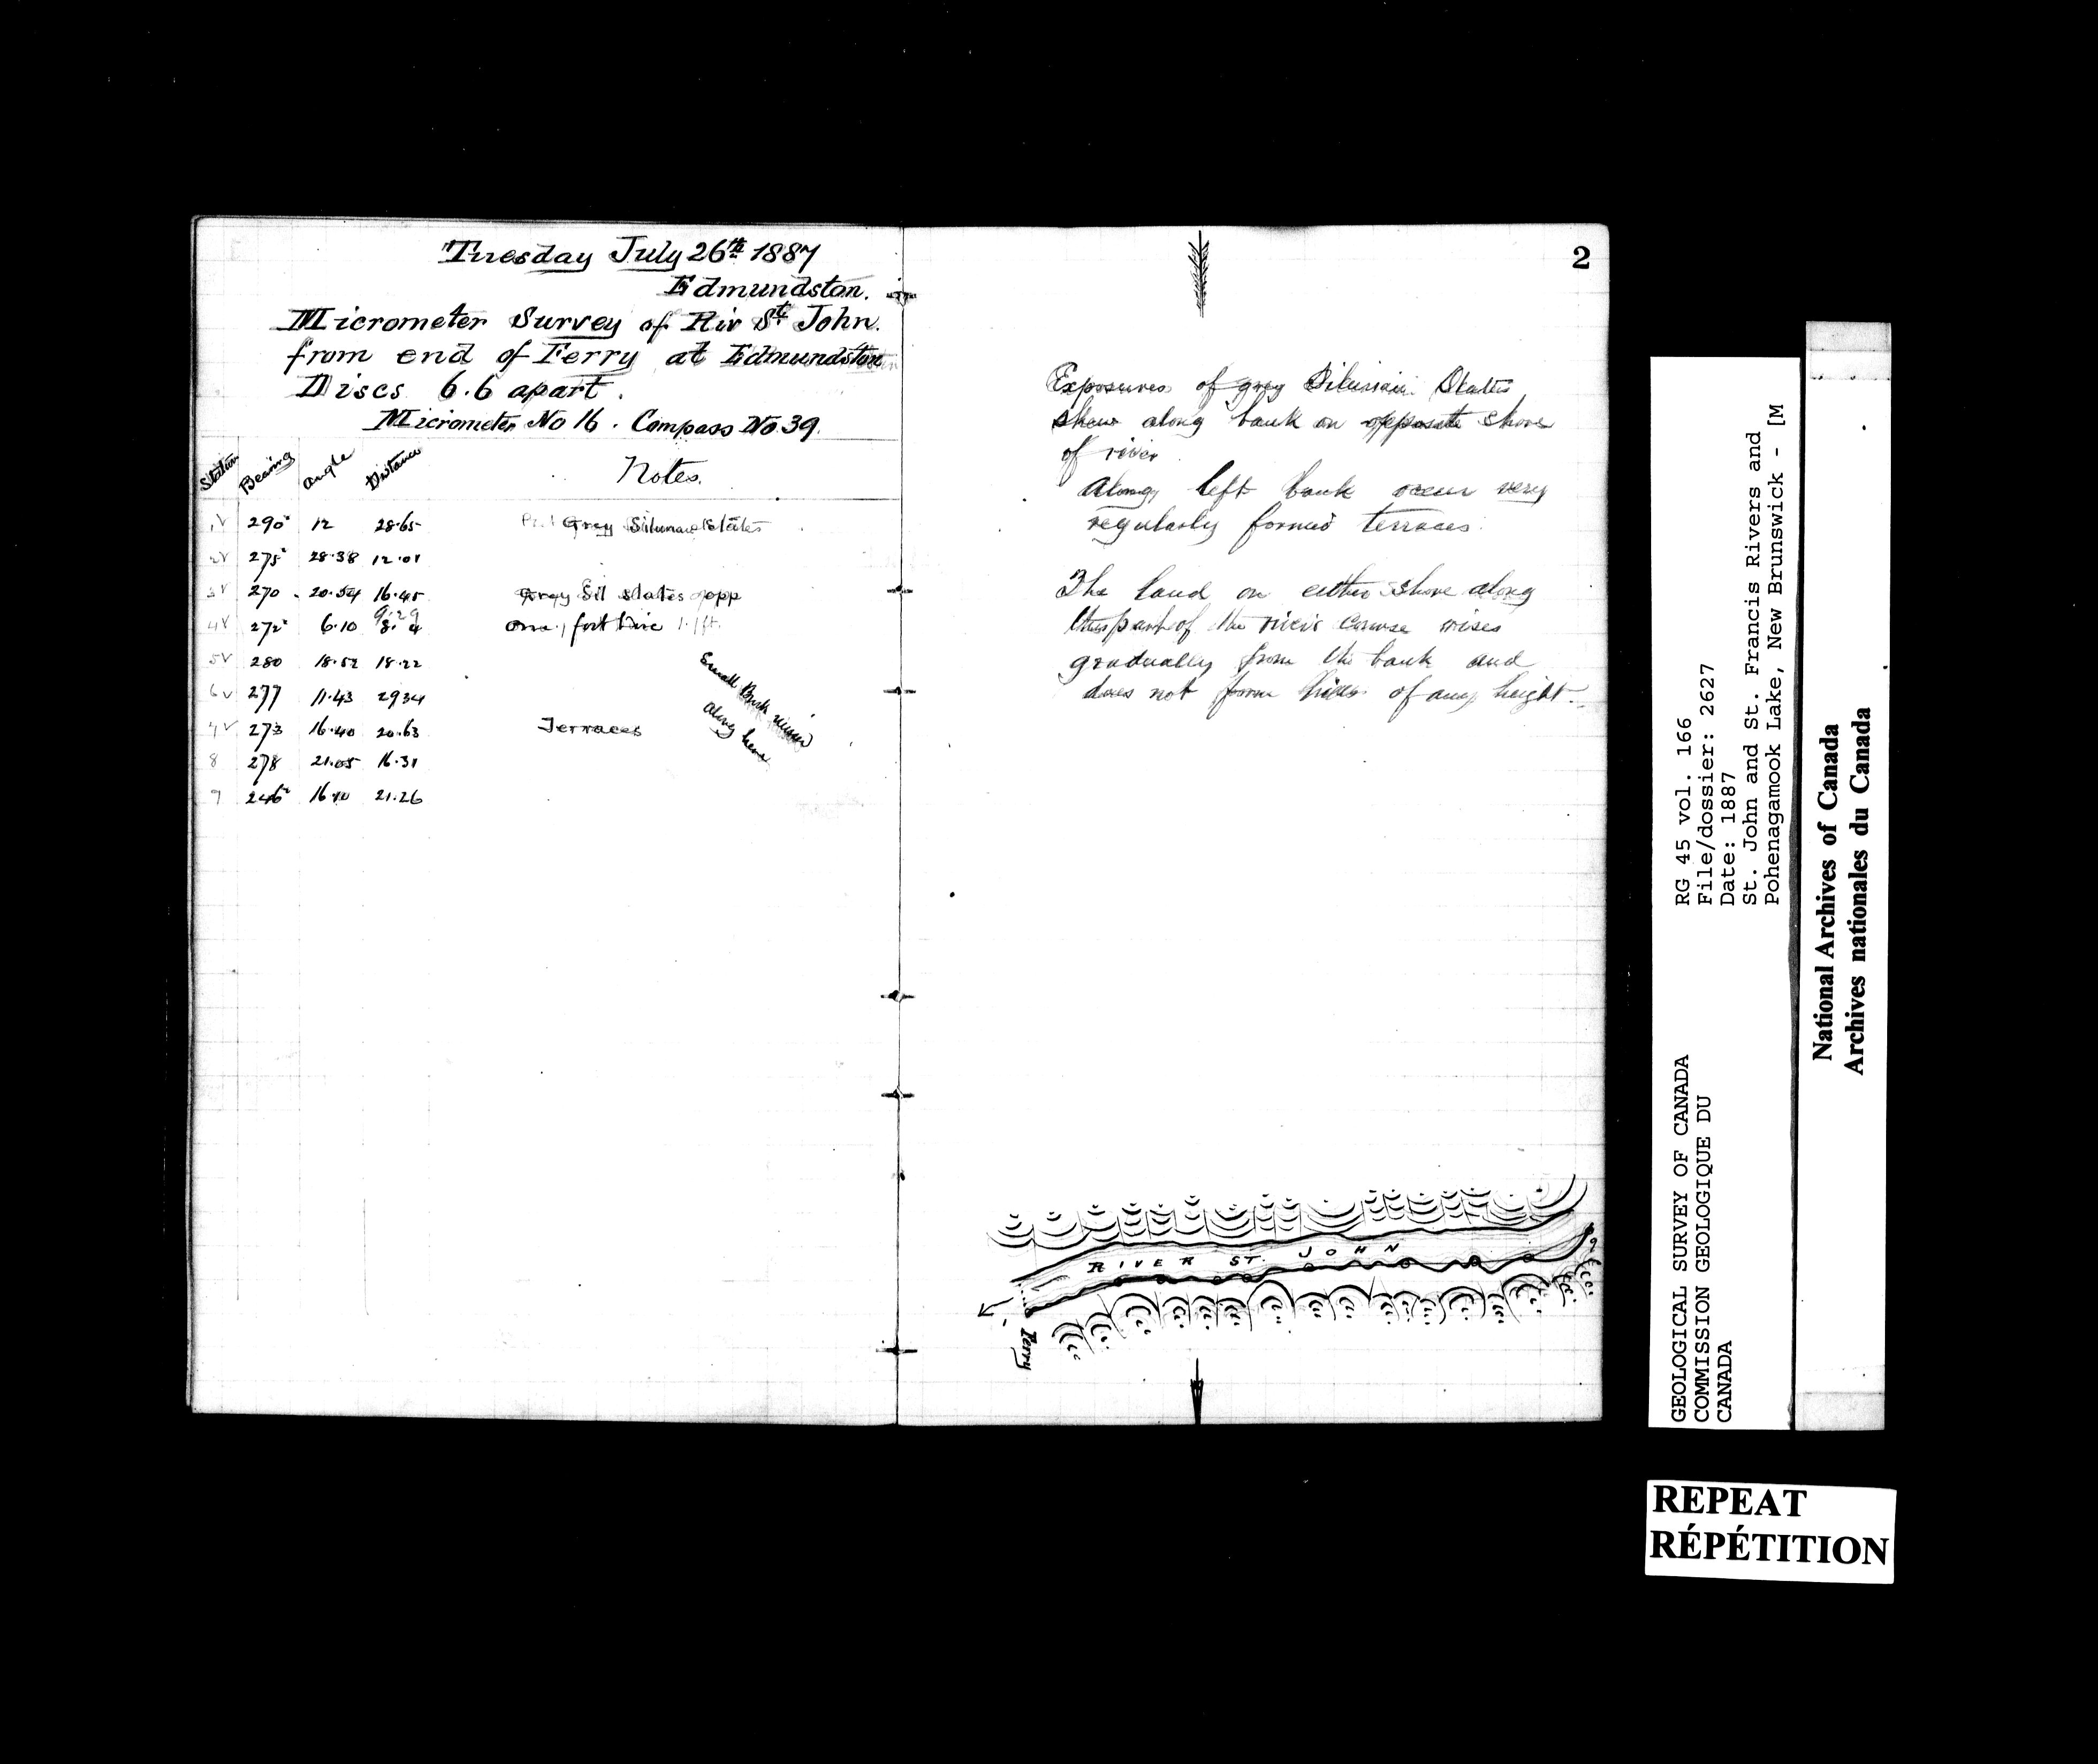 Tuesday July 26th 1887
Edmundston.
Micrometer Survey of Riv St John.
from end of Ferry at Edmundston
Discs 6.6 apart.
Micrometer No 16. Compass No 39.
Station Bearing Angle Distance Notes.
1 290° 12 28.65 Grey Silurian slates
2 275° 28.38 12.01
3 270 20.54 16.45 Grey Sil slates opp
4 272° 6.10 9.29
5 280 18.52 18.22
6 277 11.43 2934 Small Brook
7 273 16.40 20.63 Terraces along here
8 278 21.05 16.31
9 246° 16.10 21.26
2
Exposures of grey Silurian Slates
show along bank on opposite shore
of river
Along left bank occur very
regularly formed terraces.
The land on either shore along
this part of the river's course rises
gradually from the bank and
does not form hills of any height.
RIVER ST. JOHN
9
Ferry
RG 45 vol. 166
File/dossier: 2627
Date: 1887
St. John and St. Francis Rivers and
Pohenagamook Lake, New Brunswick - [M
GEOLOGICAL SURVEY OF CANADA
COMMISSION GEOLOGIQUE DU
CANADA
National Archives of Canada
Archives nationales du Canada
REPEAT
RÉPÉTITION